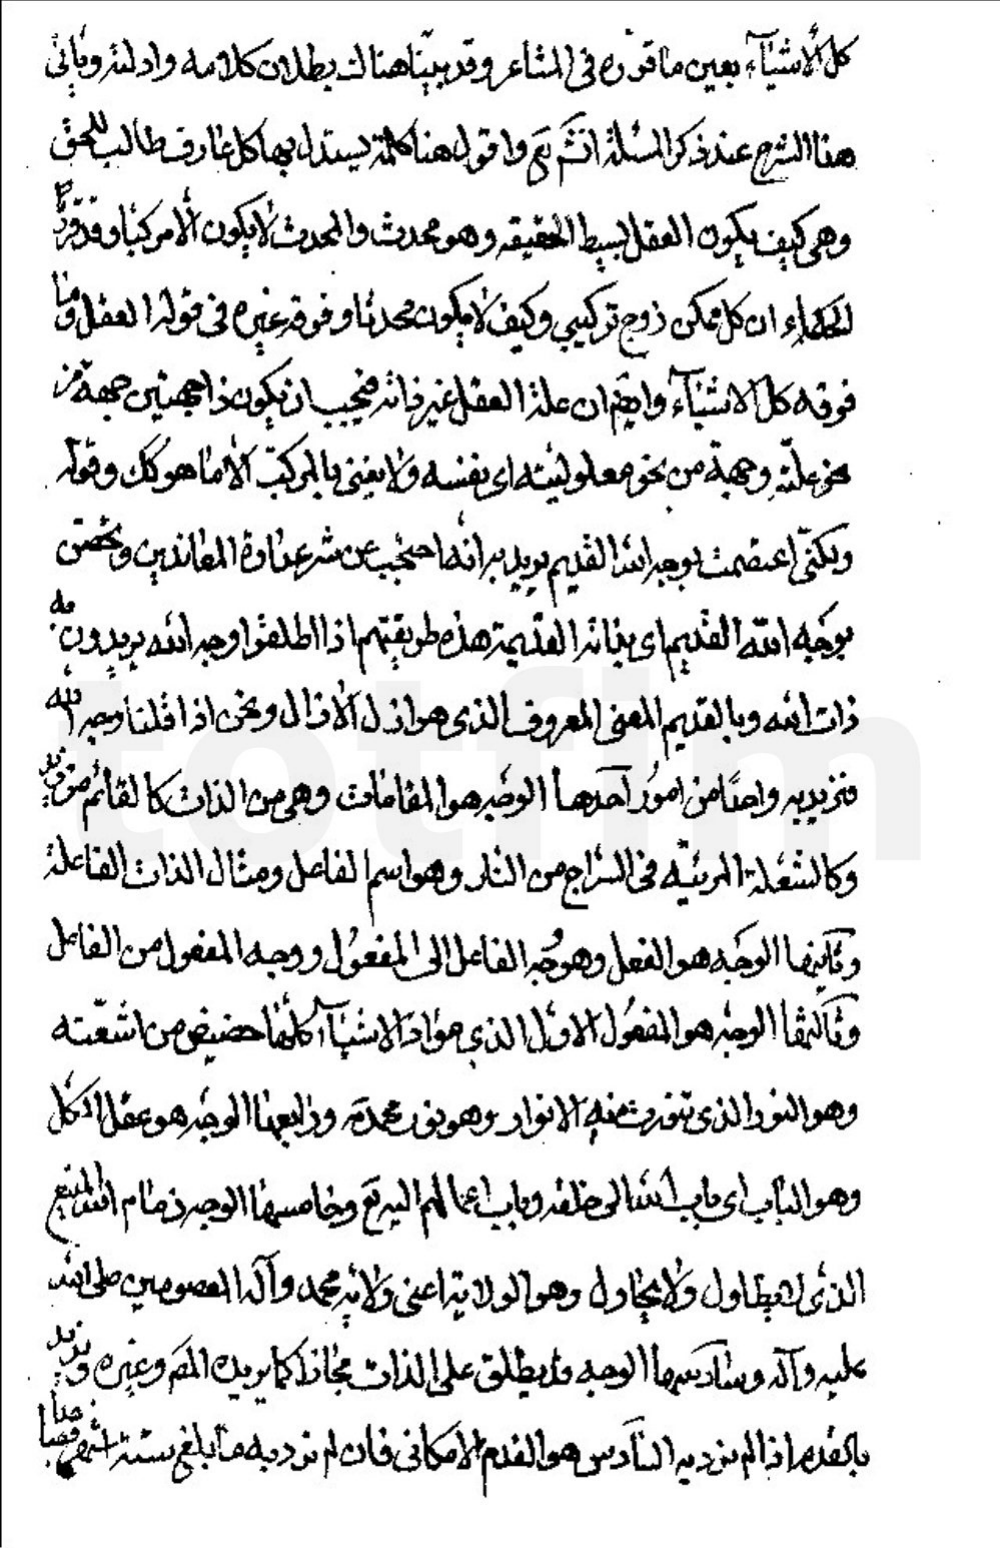 كل الأشياء بعين ما قرره في المشاعر وقد بيّنا هناك بطلان كلامه وادلته ويأتي
هنا الشرح عند ذكر المسئلة انش تع واقول هنا كلمة يستدل بها كل عارف طالب للحق
وهي كيف يكون العقل بسيط الحقيقه وهو محدث والمحدث لا يكون الا مركبا وقد قرر
الحكماء ان كل ممكن زوج تركيبي وكيف لا يكون محدثا وفوقه غيره في قوله العقل وما
فوقه كل الاشياء وايضم ان علة العقل غير ذاته فيجب ان يكون ذا جهتين جهة من
نحو علته وجهة من نحو معلوليته اي نفسه ولا يعنى بالمركب الا ما هو كك وقوله
ولكنّي اعتصمت بوجه الله القديم يريد به انه احتجب عن شر عتادة المعاندين وتحصّن
بوجه الله القديم اي بذاته القديمة هذه طريقتهم اذا اطلقوا وجه الله يريدون به
ذات الله وبالقديم المعنى المعروف الذي هو ازل الآزال ونحن اذا قلنا وجه الله
فنريد به واحدًا من امور آحدها الوجه هو المقامات وهي من الذات كالقائم من زيد
وكالشعلة المرئيّه في السّراج من النار وهو اسم الفاعل ومثال الذات الفاعلة
وثانيها الوجه هو الفعل وهو وجه الفاعل الى المفعول ووجه المفعول من الفاعل
وثالثها الوجه هو المفعول الاوّل الذي موادّ الاشياء كلّها حضيض من اشعّته
وهو النور الذي تنورت منه الانوار وهو نور محمد ص ورابعها الوجه هو عقل الكل
وهو الباب اي باب الله الى خلقه وباب اعمالهم اليه تع وخامسها الوجه ذمام الله المنيع
الذي لا يطاول ولا يحاول وهو الولاية اعني ولاية محمد وآله المعصومين صلى الله
عليه وآله وسادسها الوجه ما يطلق على الذات مجازا كما يريده المصم وغيره ونريد
بالقديم اذا لم نرد به السّادس هو القدم الامكاني فان لم نرد به ما بلغ ستة اشهر فصاعدا